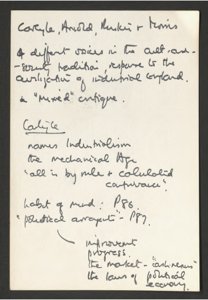 Carlyle, Arnold, Ruskin & Morris
4 different voices in the cult. and
social tradition, response to the
civilization of industrial England.
a "mixed" critique.
Carlyle
names Industrialism
the mechanical Age
"all is by rule & calculated
contrivance"
habit of mind: P86.
"political arrangemts" - P87.
improvement
progress.
the market - "cash nexus"
the laws of political
economy.